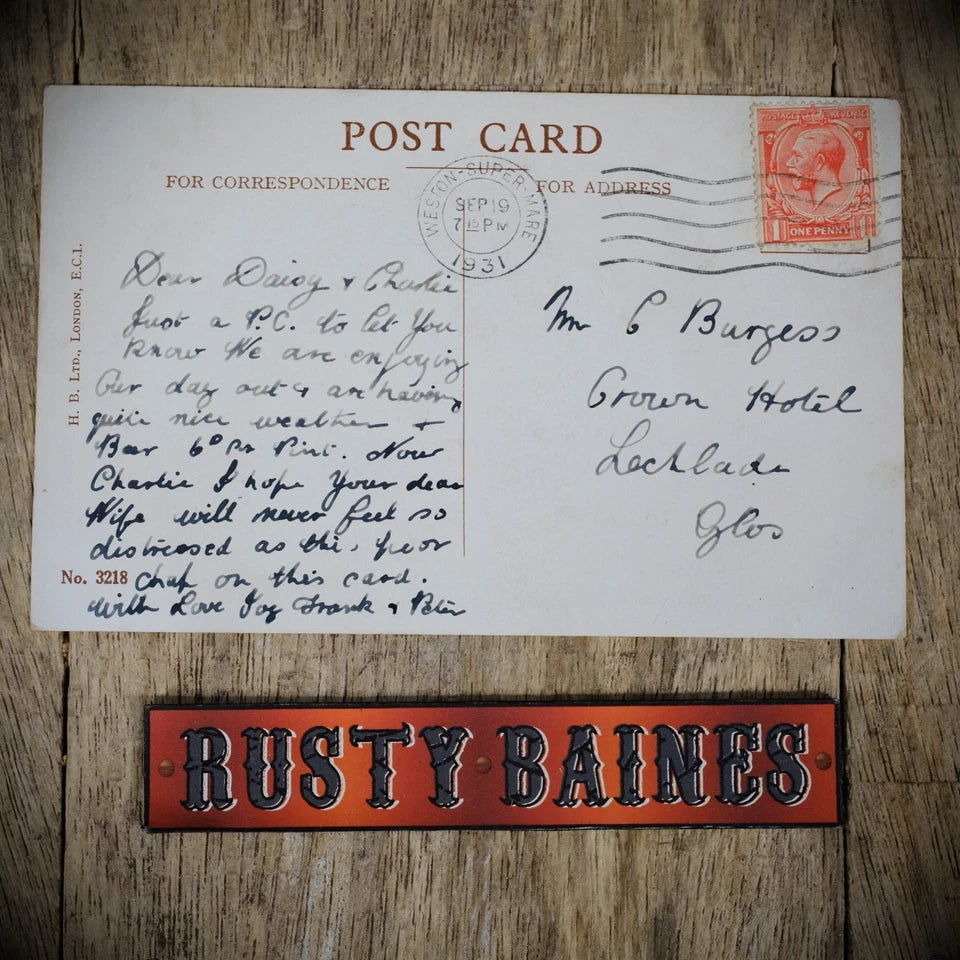 POST CARD
FOR CORRESPONDENCE
FOR ADDRESS
WESTON-SUPER-MARE
SEP 19
7 15 PM
1931
POSTAGE REVENUE
1 ONE PENNY 1
H. B. LTD., LONDON, E.C.1.
Dear Daisy & Charlie
Just a P.C. to let You
Know We are enjoying
Our day out & are having
quite nice weather &
Beer 6D Per Pint. Now
Charlie I hope Your dear
Wife will never feel so
distressed as this poor
chap on this card.
With Love Joy Frank & Peter
No. 3218
Mr C Burgess
Crown Hotel
Lechlade
Glos
RUSTY BAINES